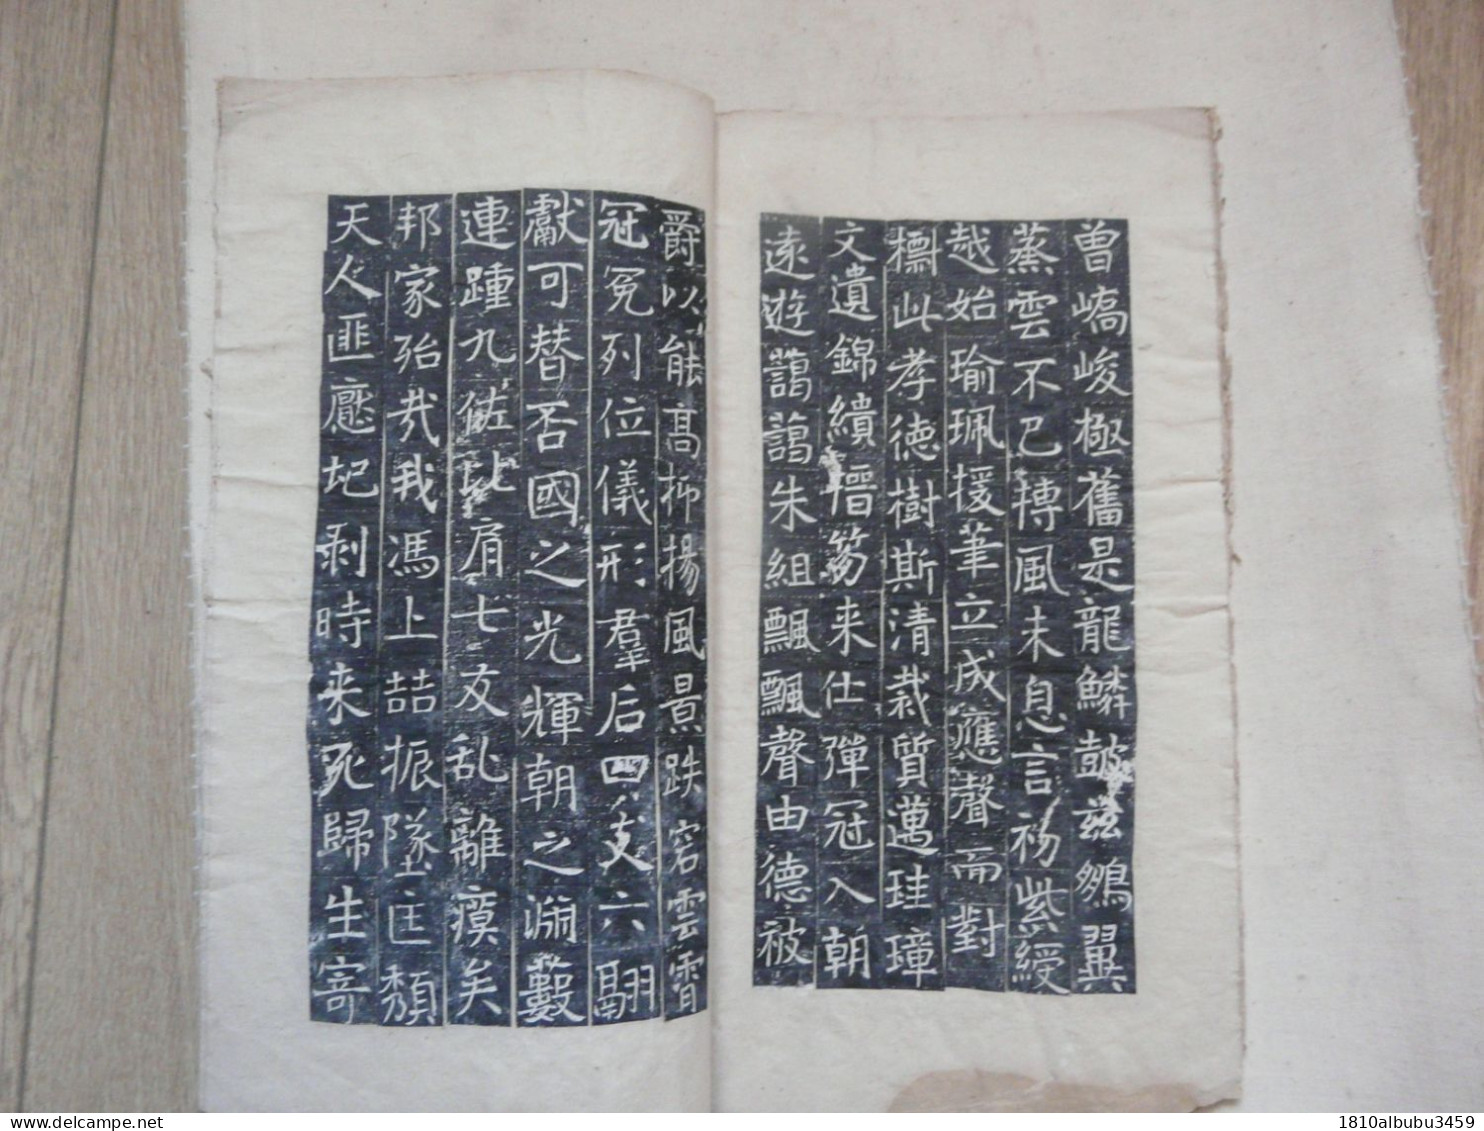 曾嶠峻極舊是龍鱗鼓茲鵷翼
蒸雲不已摶風未息言紫綬
越始瑜珮援筆立成應聲而對
標此孝德樹斯清裁質邁珪璋
文遺錦繢搢笏来仕彈冠入朝
遠遊藹藹朱組飄飄聲由德被
爵以能高抑揚風景跌宕雲霄
冠冕列位儀形羣后四支六翮
獻可替否國之光輝朝之淵藪
連踵九佐比肩七友乱離瘼矣
邦家殆哉我馮上喆振墜匡頹
天人匪應圮剥時来死歸生寄
1810albubu3459